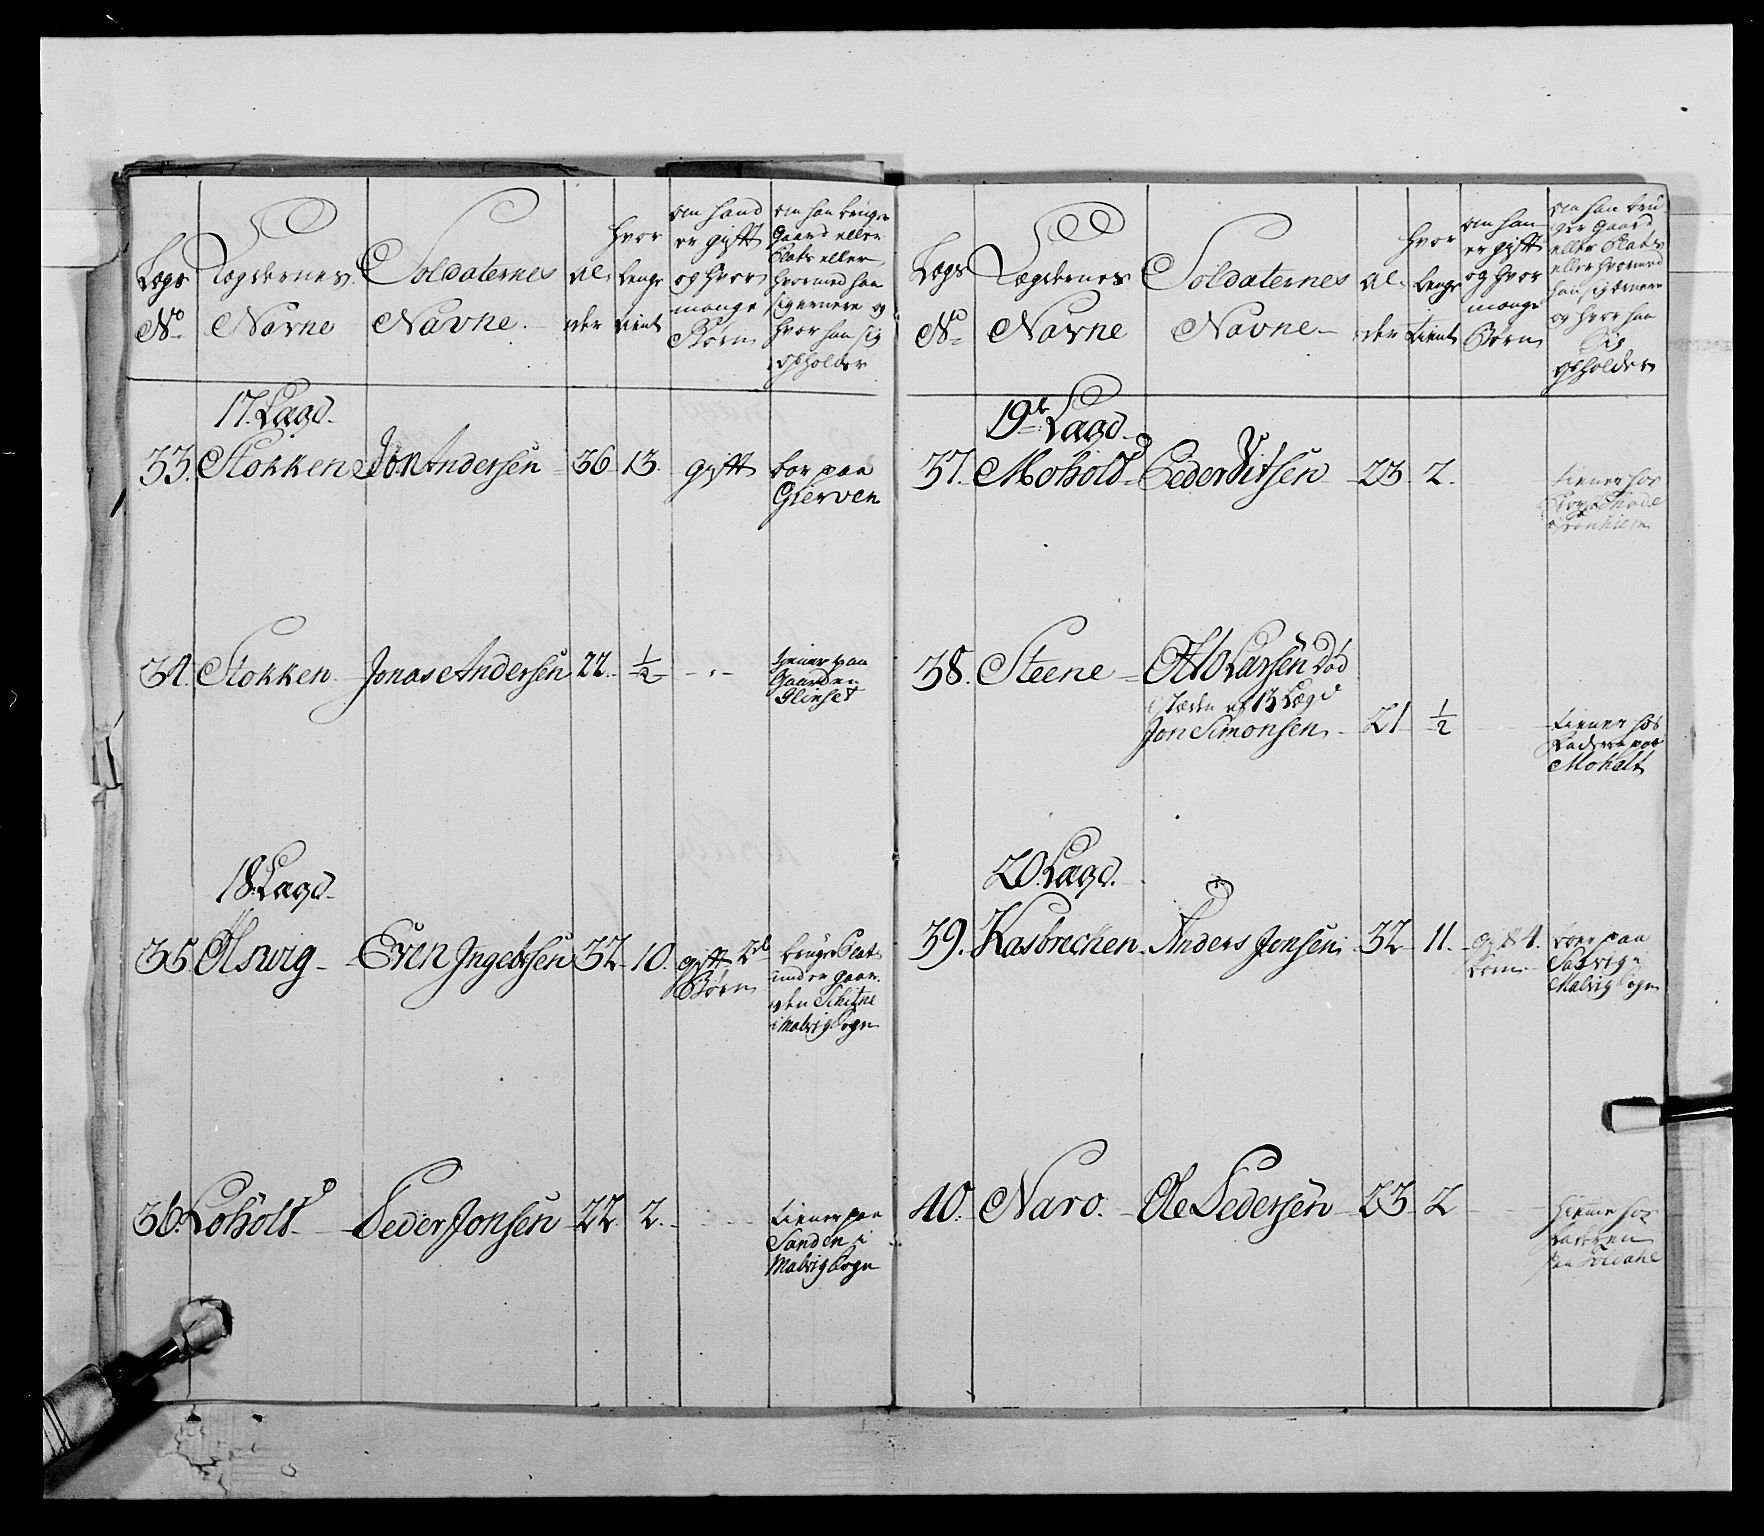 Lægs
No
Lægdernes
Navne
Soldaternes
Navne.
Al-
der
hvor
lenge
tient
om hand
er gifft
og hvor
mange
Børn
om han bruger
Gaard eller
Plats eller
hvormed han
sig ernere og
hvor han sig
opholder
17. Lægd.
33. Stokken Jon Andersen 36 13. gifft
boe paa
Gierven
34. Stokken Jonas Andersen 22. ½
tiener paa
Gaarden
18. Lægd.
35 Olswig Even Ingebrsen 32 10. gifft 2de
Børn
bruger Plat
under gaar-
den
i Malvig Sogn
36. Loholt Peder Jonsen 22. 2.
tiener paa
Sanden i
Malvig Sogn
Lægs
No
Lægdernes
Navne
Soldaternes
Navne
Al-
der
hvor
lenge
tient
om han
er gifft
og hvor
mange
Børn
om han bru-
ger Gaard
eller Plats
eller hvormed
han sig ernere
og hvor han
sig
opholder
19de Lægd.
37. Mohold Peder 23 2.
tiener hos
38. Steene Ole Larsen død
i stæden af 13 Lægd
Jon Simonsen 21 ½
tiener hos
Faderen paa
Moholt
20. Lægd.
39. Kasbrechen Anders Jonsen 32 11. gifft 4.
Børn
boer paa
Saxvig i
Malvig Sogn
40. Naro. Ole Pedersen 23 2
hiemme hos
Faderen
paa